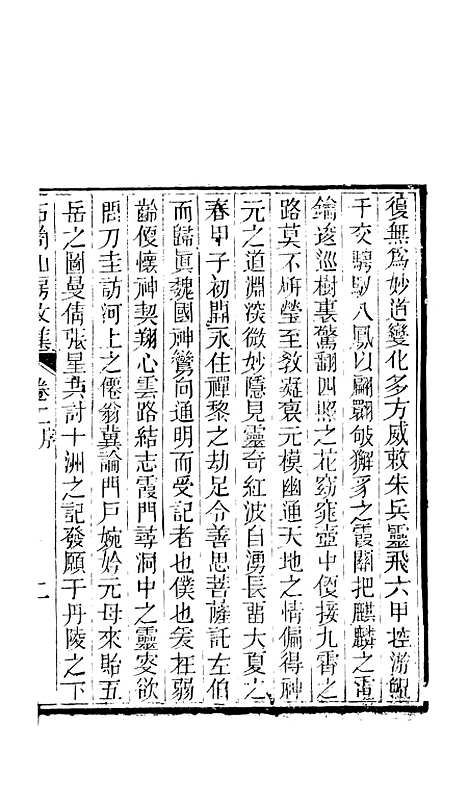 復無爲妙道變化多方威敕朱兵靈飛六甲控滂鯤
于交騎馭八鳳以翩翾皷獬豸之霞關把麒麟之霄
鑰逡巡樹裏驚翻四照之花窈窕壺中復接九霄之
路莫不硏瑩至敎凝褱元模幽通天地之情偏得神
元之道淵淡微妙隱見靈奇紅波白湧長畱大夏之
春甲子初開永住禪黎之劫足令善思菩薩託左伯
而歸眞魏國神鸞向通明而受記者也僕也爰在弱
齡復懷神契翔心雲路結志霞門尋洞中之靈安欲
問刀圭訪河上之僊翁冀論門戶婉妗元母來貽五
岳之圖曼倩張星共計十洲之記發願于丹陵之下
石笥山房文集 卷二序 二